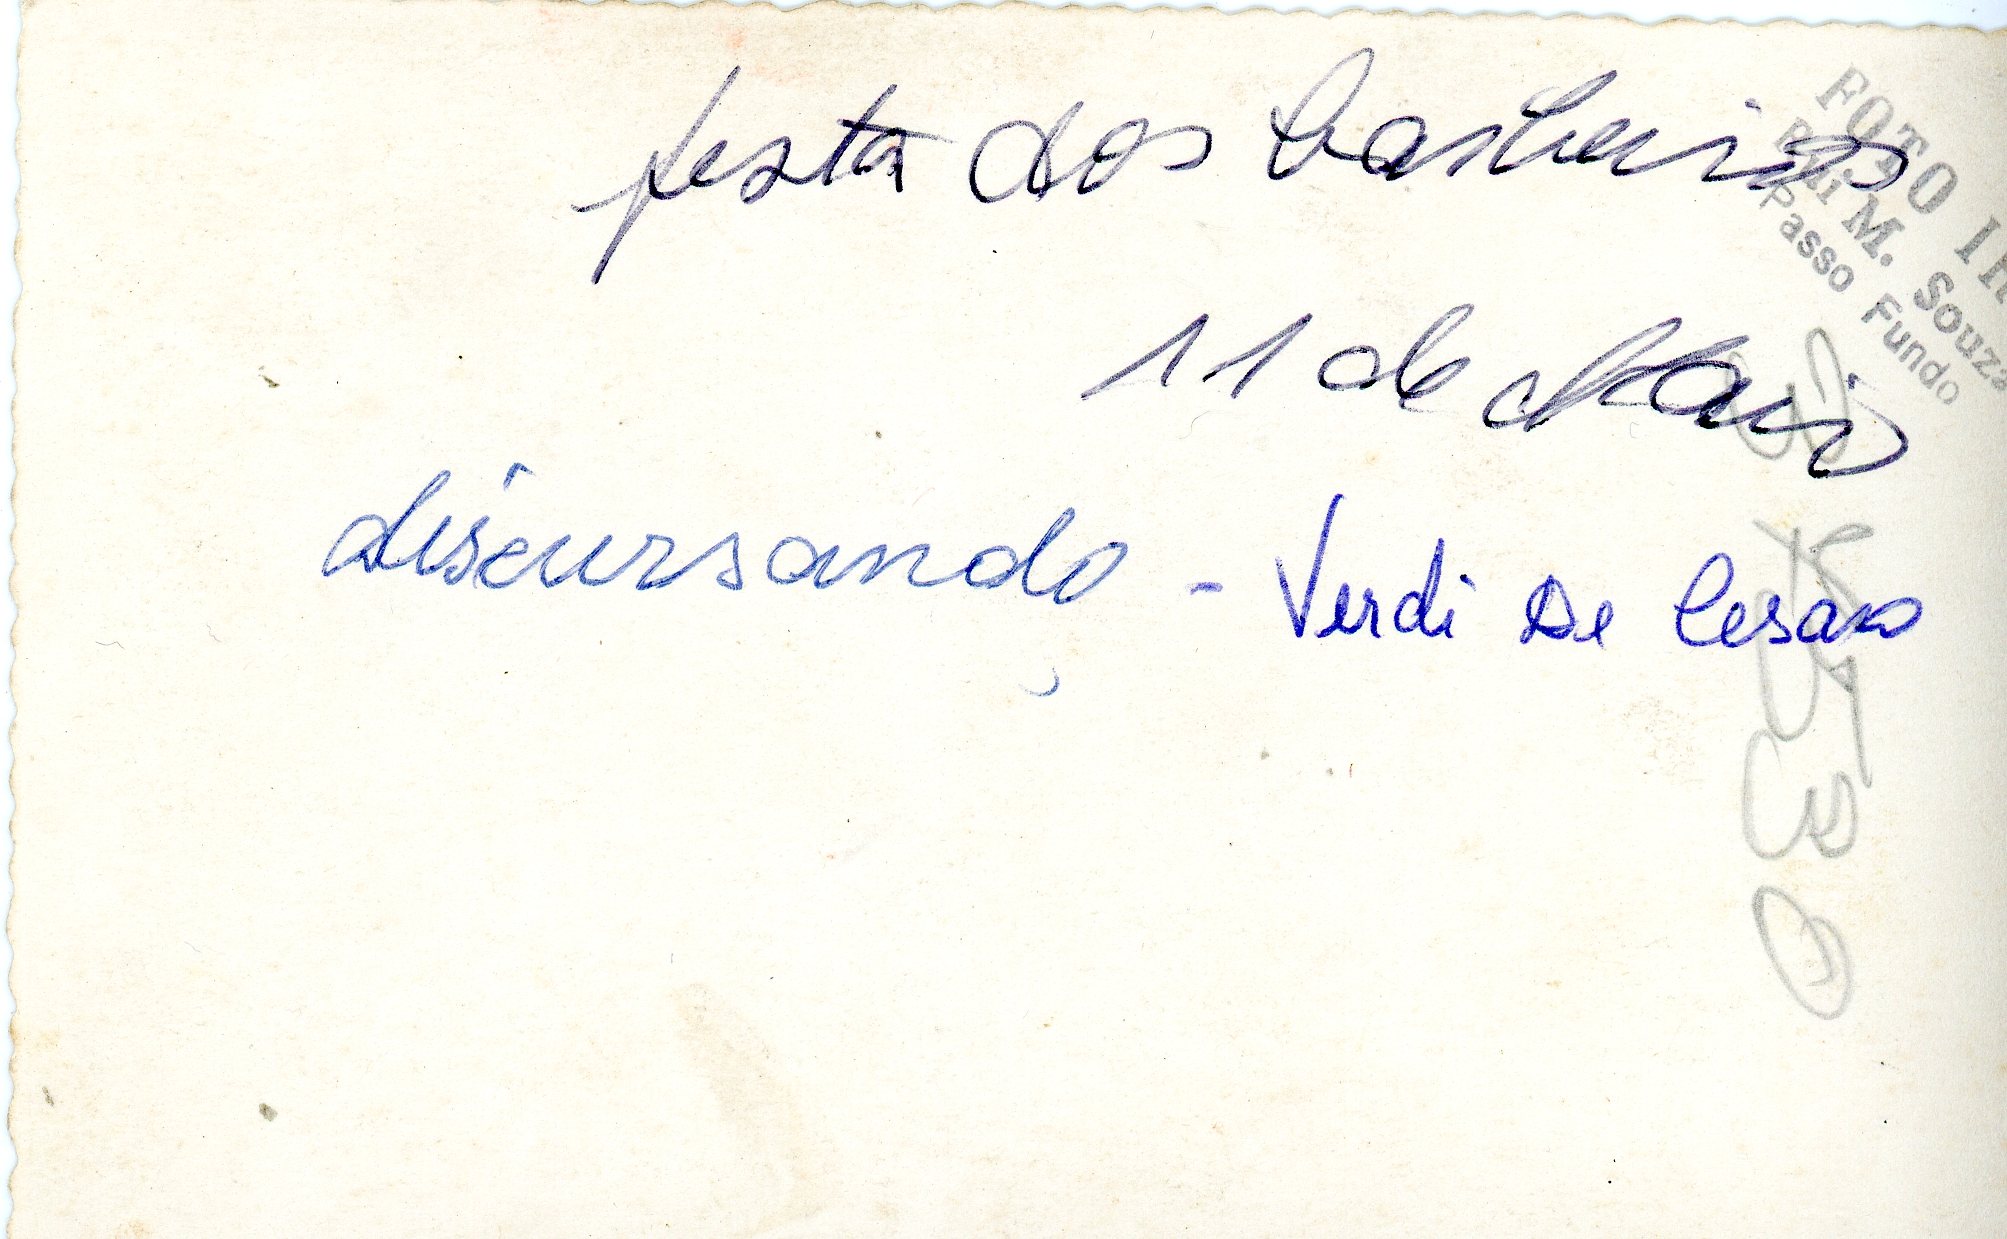 festa dos barbeiros
11 de Maio
discursando - Verdi De Cesaro
FOTO
M. Souza
Passo Fundo